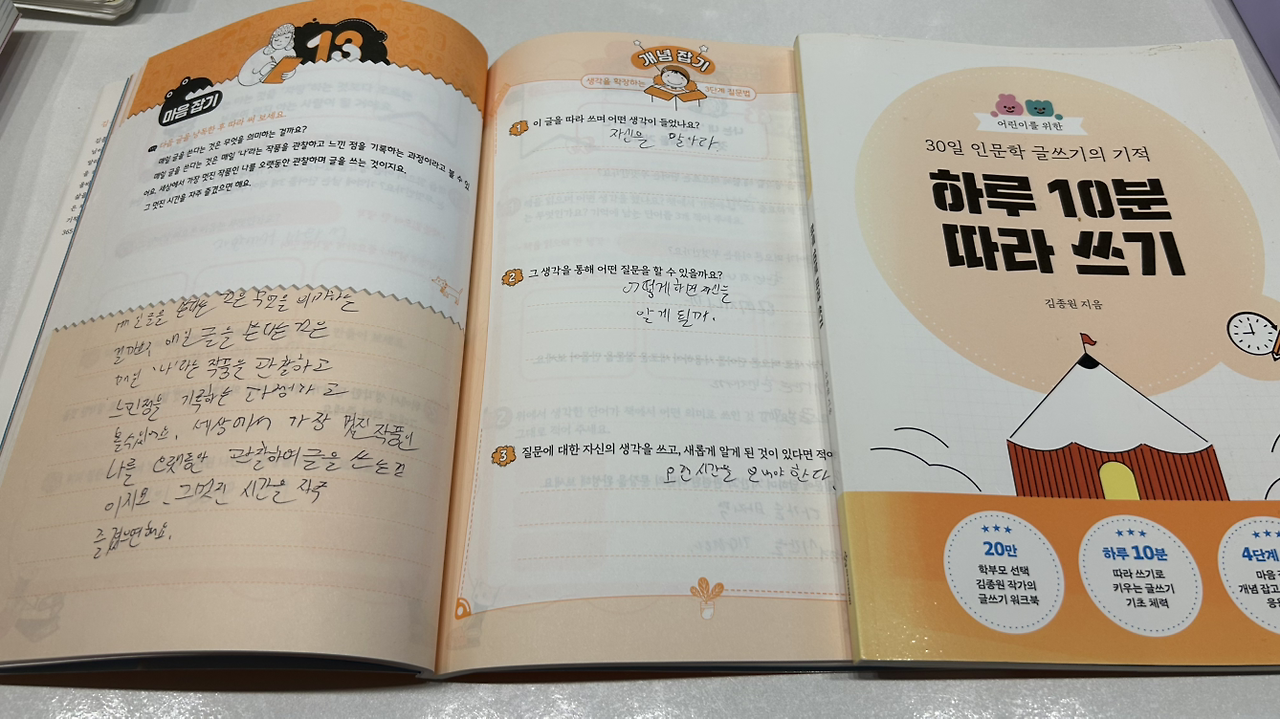 13
마음 잡기
다음 글을 낭독한 후 따라 써 보세요.
매일 글을 쓴다는 것은 무엇을 의미하는 걸까요?
매일 글을 쓴다는 것은 매일 '나'라는 작품을 관찰하고 느낀 점을 기록하는 과정이라고 볼 수 있
어요. 세상에서 가장 멋진 작품인 나를 오랫동안 관찰하며 글을 쓰는 것이지요.
그 멋진 시간을 자주 즐겼으면 해요.
매일 글을 쓴다는 것은 무엇을 의미하는
걸까요? 매일 글을 쓴다는 것은
매일 '나'라는 작품을 관찰하고
느낀점을 기록하는 과정이라고
볼수있어요. 세상에서 가장 멋진 작품인
나를 오랫동안 관찰하며 글을 쓰는것
이지요 그멋진 시간을 자주
즐겼으면해요.
365
개념 잡기
생각을 확장하는 3단계 질문법
1 이 글을 따라 쓰며 어떤 생각이 들었나요?
2 그 생각을 통해 어떤 질문을 할 수 있을까요?
어떻게하면
알게 될까.
3 질문에 대한 자신의 생각을 쓰고, 새롭게 알게 된 것이 있다면 적어
시간을 보내야 한다.
어린이를 위한
30일 인문학 글쓰기의 기적
하루 10분
따라 쓰기
김종원 지음
20만
학부모 선택
김종원 작가의
글쓰기 워크북
하루 10분
따라 쓰기로
키우는 글쓰기
기초 체력
4단계
마음
개념 잡고
응용